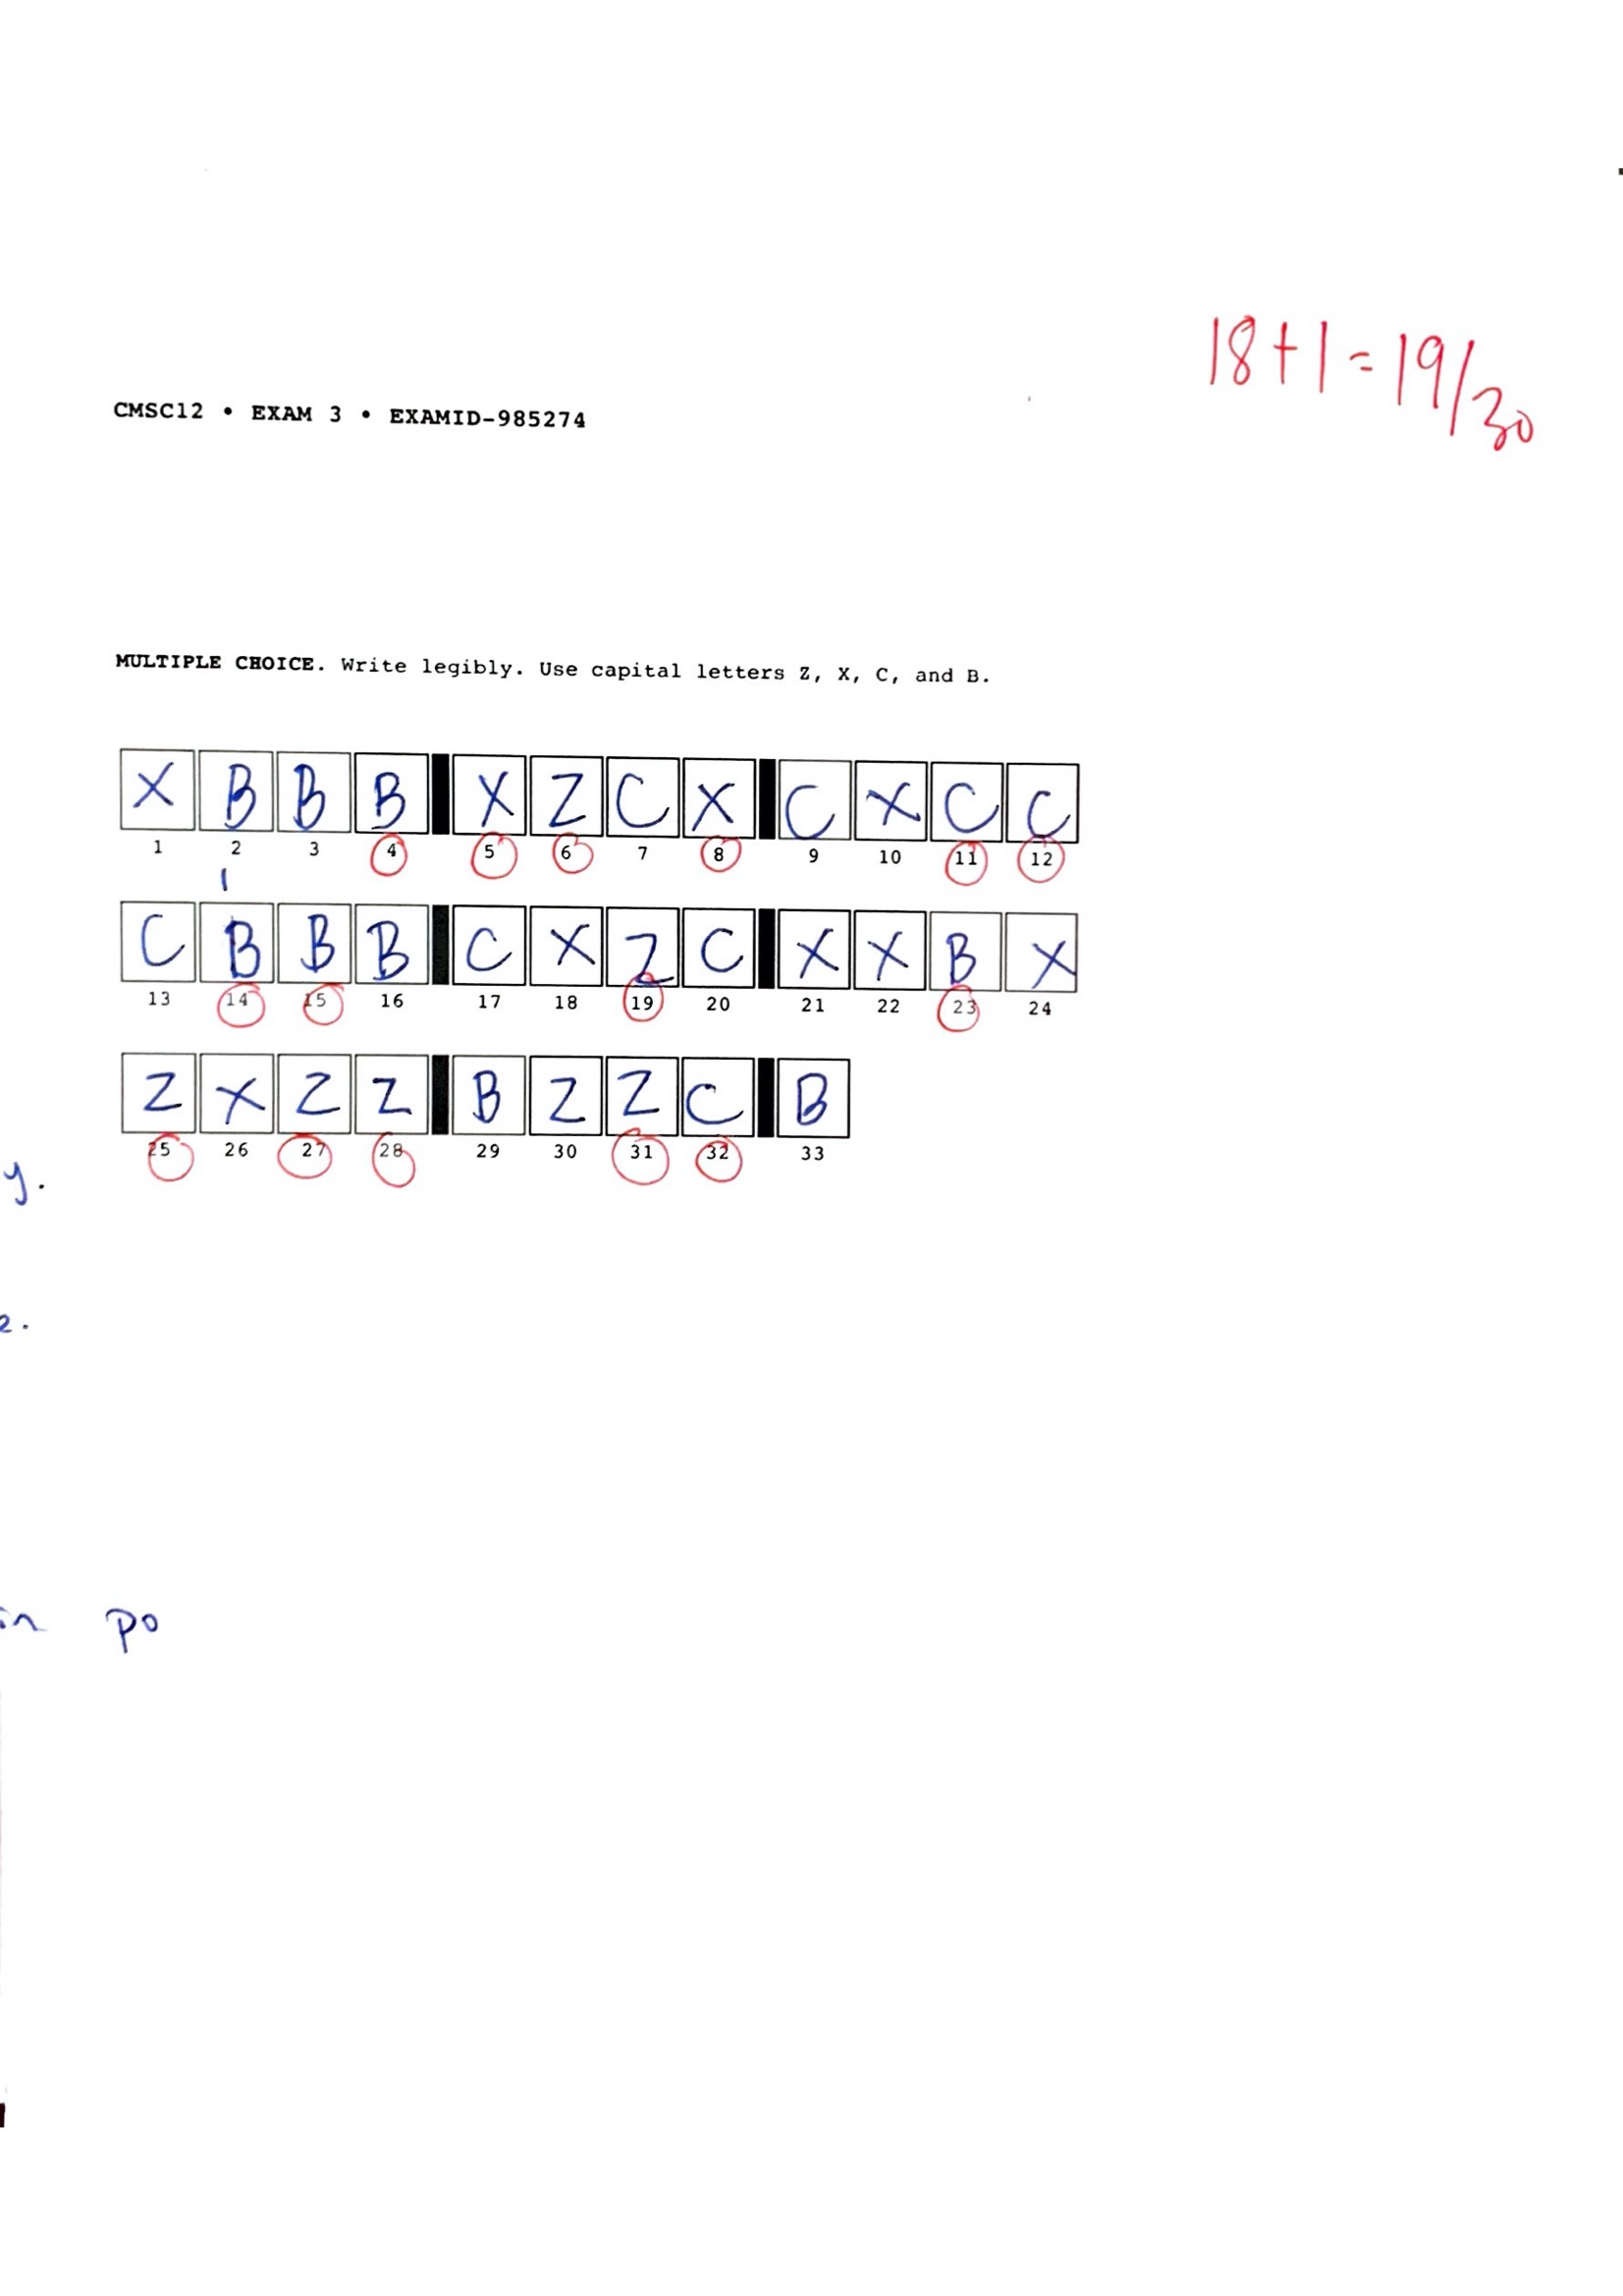 18+1=19/30
CMSC12 • EXAM 3 • EXAMID-985274
MULTIPLE CHOICE. Write legibly. Use capital letters Z, X, C, and B.
X B B B X Z C X C X C C
1 2 3 4 5 6 7 8 9 10 11 12
C B B B C X Z C X X B X
13 14 15 16 17 18 19 20 21 22 23 24
Z X Z Z B Z Z C B
25 26 27 28 29 30 31 32 33
y.
e.
in po